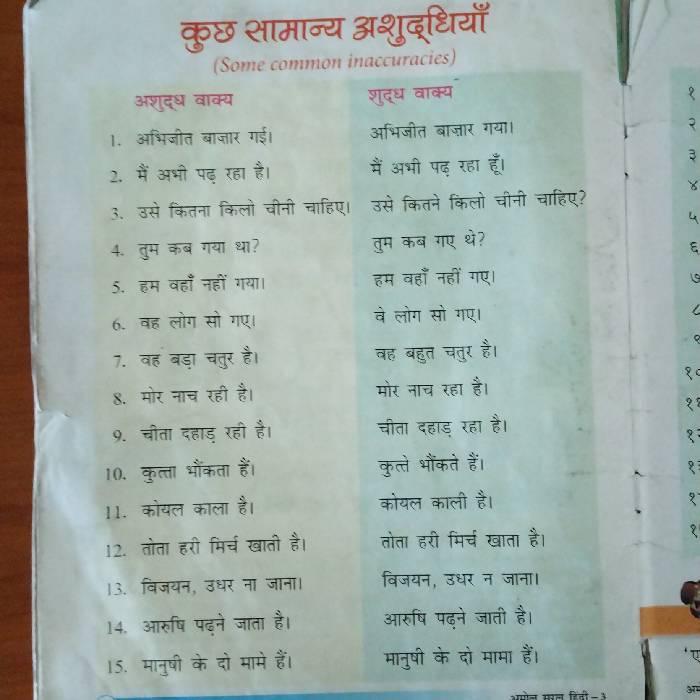 कुछ सामान्य अशुद्धियाँ
(Some common inaccuracies)
अशुद्ध वाक्य शुद्ध वाक्य
1. अभिजीत बाज़ार गई। अभिजीत बाज़ार गया।
2. मैं अभी पढ़ रहा है। मैं अभी पढ़ रहा हूँ।
3. उसे कितना किलो चीनी चाहिए। उसे कितने किलो चीनी चाहिए?
4. तुम कब गया था? तुम कब गए थे?
5. हम वहाँ नहीं गया। हम वहाँ नहीं गए।
6. वह लोग सो गए। वे लोग सो गए।
7. वह बड़ा चतुर है। वह बहुत चतुर है।
8. मोर नाच रही है। मोर नाच रहा है।
9. चीता दहाड़ रही है। चीता दहाड़ रहा है।
10. कुत्ता भौंकता हैं। कुत्ते भौंकते हैं।
11. कोयल काला है। कोयल काली है।
12. तोता हरी मिर्च खाती है। तोता हरी मिर्च खाता है।
13. विजयन, उधर ना जाना। विजयन, उधर न जाना।
14. आरुषि पढ़ने जाता है। आरुषि पढ़ने जाती है।
15. मानुषी के दो मामे हैं। मानुषी के दो मामा हैं।
अमोल सरल हिंदी–3
१
२
३
४
५
६
७
८